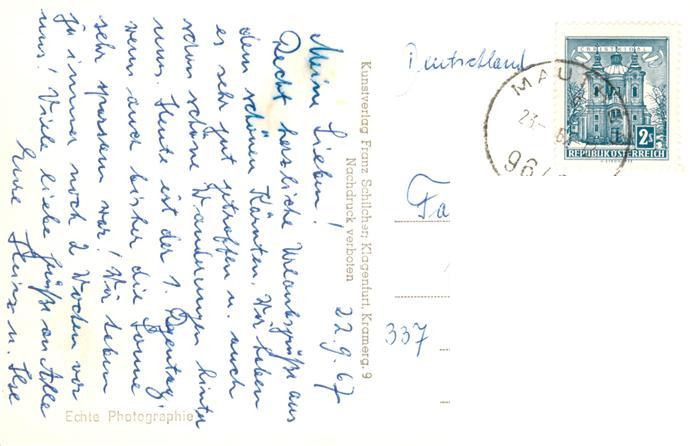 Meine Lieben!
22.9.67
Recht herzliche Urlaubsgrüße aus
dem schönen Kärnten. Wir haben
es sehr gut getroffen u. auch
schon schöne Wanderungen hinter
uns. Heute ist der 1. Regentag,
wenn auch bisher die Sonne
sehr sparsam war! Wir haben
ja immer noch 2 Wochen vor
uns! Viele liebe Grüße an Alle
Eure Heinz u. Ilse
Echte Photographie
Kunstverlag Franz Schilcher, Klagenfurt, Kramerg. 9
Nachdruck verboten
Deutschland
CHRISTKINDL
2 S
REPUBLIK ÖSTERREICH
MAUT
23.
96
Fa
337